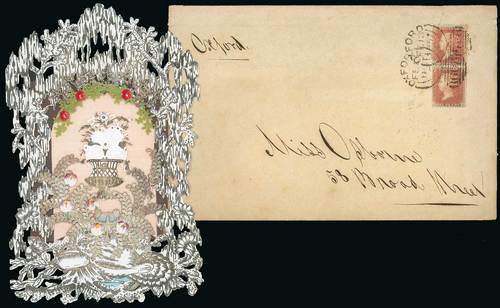 Oxford.
Miss Osborne
53 Broad Street